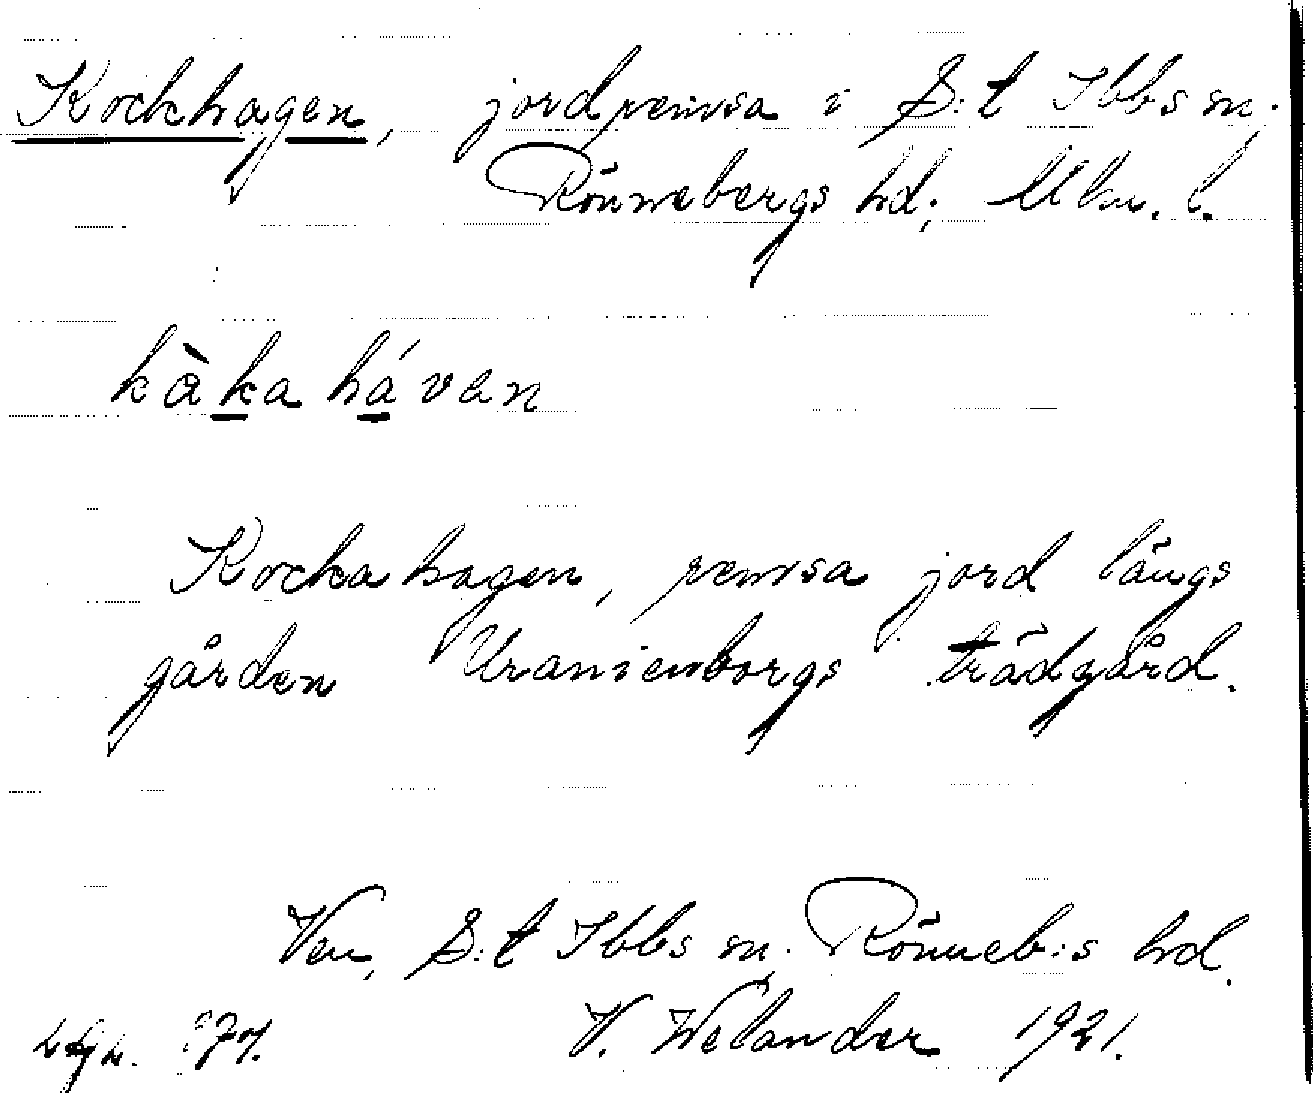 Kockhagen, jordremsa i S:t Ibbs sn.
Rönnebergs hd; Mlm. l.
kàka háven
Kockahagen, remsa jord längs
gården Uranienborgs trädgård.
Ven, S:t Ibbs sn. Rönneb:s hd.
V. Welander 1921.